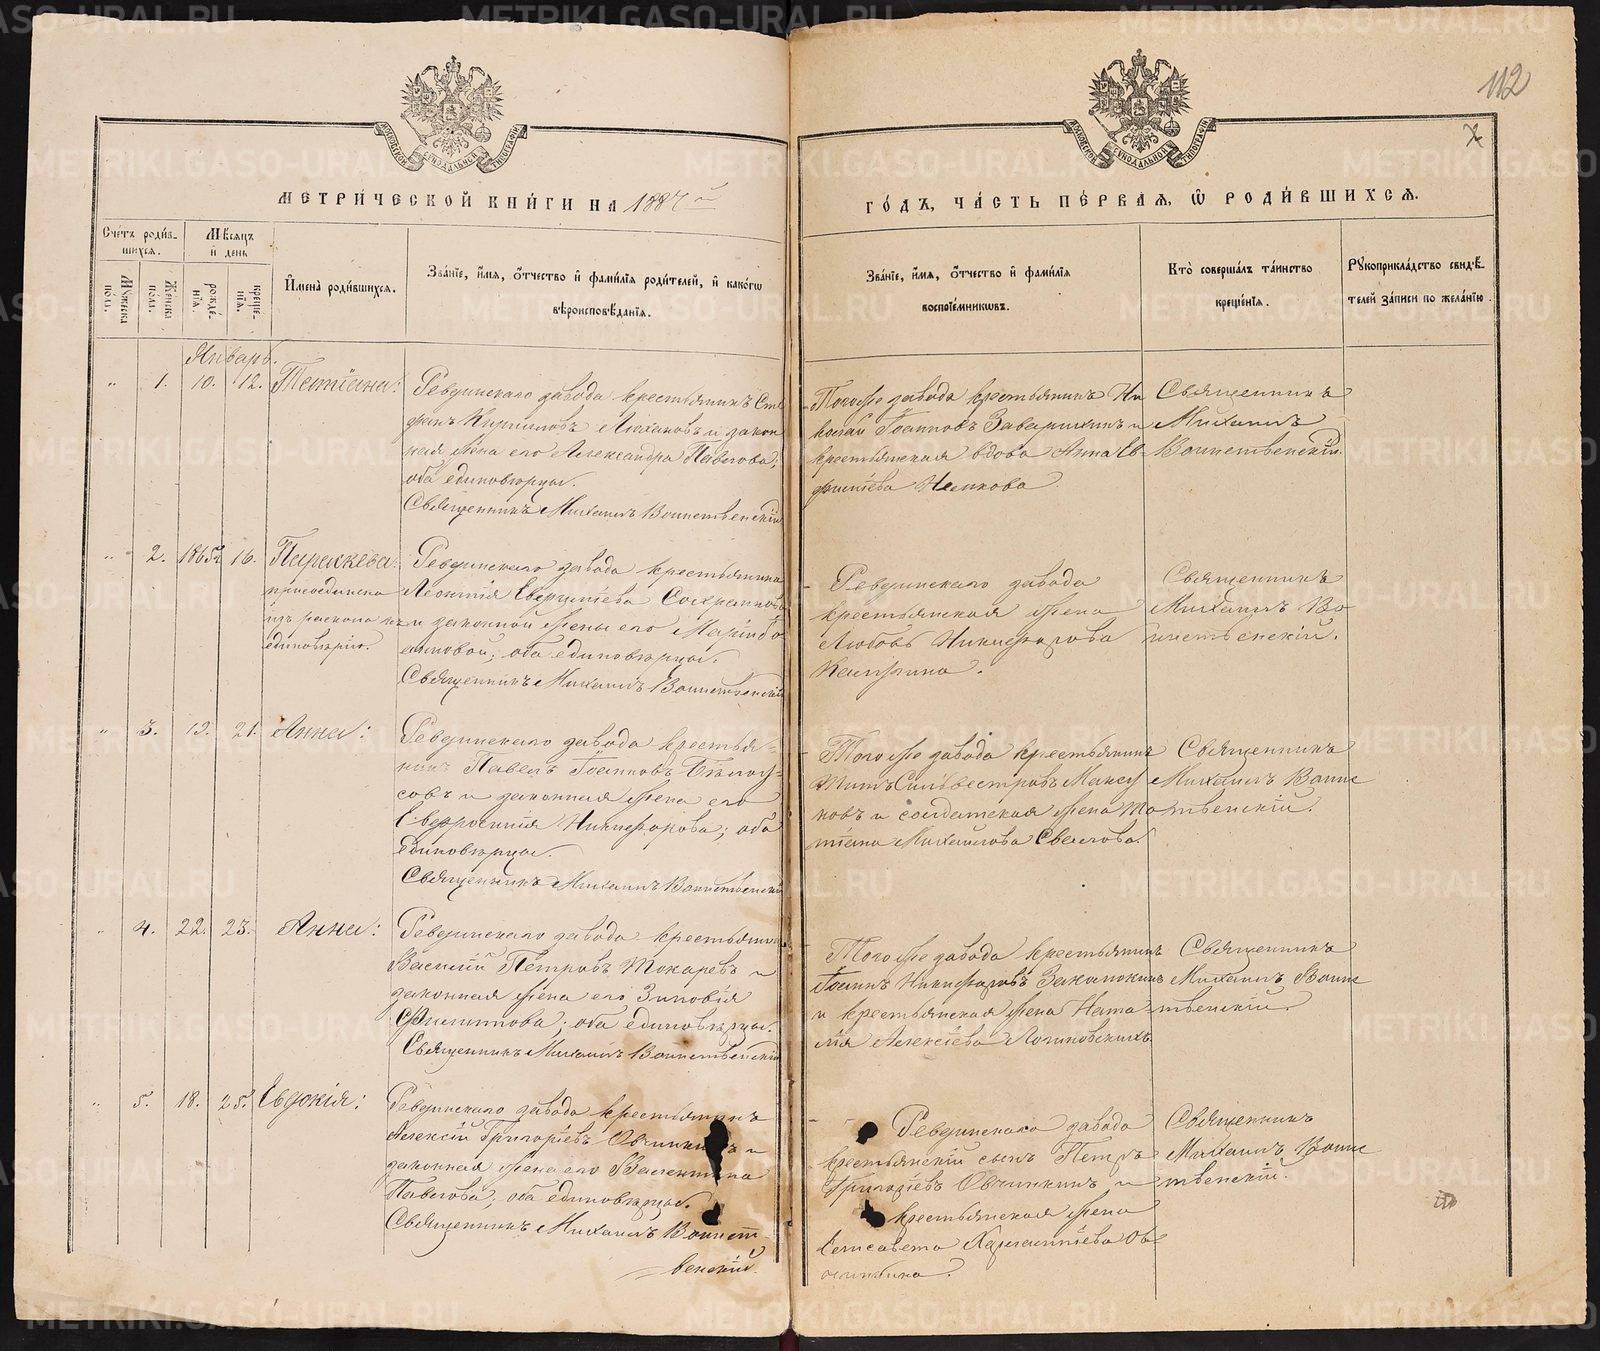 METRIKI.GASO-URAL.RU
112
МОСКОВСКОЙ СѴНОДАЛЬНОЙ ТИПОГРАФІИ
МОСКОВСКОЙ СѴНОДАЛЬНОЙ ТИПОГРАФІИ
МЕТРИ́ЧЕСКОЙ КНИ́ГИ НА 1887й
ГО́ДЪ, ЧА́СТЬ ПЕ́РВАЯ, Ѡ РОДИ́ВШИХСЯ.
Сче́тъ роди́в-
шихся.
Му́жеска
полъ.
Же́нска
полъ.
Мѣ́сяцъ
и҆ день
рожде́-
нїя.
креще́-
нїя.
И҆мена̀ роди́вшихся.
Зва́нїе, и҆́мя, ѻ҆́тчество и҆ фами́лїя роди́телей, и҆ како́гѡ
вѣроисповѣ́данїя.
Зва́нїе, и҆́мя, ѻ҆́тчество и҆ фами́лїя
воспрїе́мникѡвъ.
Кто̀ соверша́лъ та́инство
креще́нїя.
Рꙋкоприкла́дство свидѣ́-
телей за́писи по жела́нїю.
Январь.
" 1. 10. 12. Татіана:
Ревдинскаго завода крестьянинъ Сте
фанъ Кирилловъ и закон
ная жена его Александра Павлова,
оба единовѣрцы.
Священникъ Михаилъ Воинственскій
Того же завода крестьянинъ Ни
колай Іоанновъ и
крестьянская вдова Анна
Священникъ
Михаилъ
Воинственскій.
" 2. 1865 16. Параскева:
присоединена
изъ раскола къ
единовѣрію.
Ревдинскаго завода крестьянина
Леонтія
и законной жены его
оба единовѣрцы.
Священникъ Михаилъ Воинственскій
Ревдинскаго завода
крестьянская жена
Любовь Никифорова
Священникъ
Михаилъ Во-
инственскій.
" 3. 19. 21. Анна:
Ревдинскаго завода крестья-
нинъ Павелъ Іоанновъ Бѣлоу-
совъ и законная жена его
Евфросинія Никифорова; оба
единовѣрцы.
Священникъ Михаилъ Воинственскій
Того же завода крестьянинъ
Титъ Сильвестровъ
и солдатская жена Та
тіана Михайлова
Священникъ
Михаилъ Воинс
твенскій.
" 4. 22. 23. Анна:
Ревдинскаго завода крестьянинъ
Василій Петровъ Токаревъ и
законная жена его Зиновія
Филиппова; оба единовѣрцы.
Священникъ Михаилъ Воинственскій
Того же завода крестьянинъ
Іоаннъ Никифоровъ
и крестьянская жена Ната
лія Алексіева Логиновскихъ.
Священникъ
Михаилъ Воинс
твенскій.
" 5. 18. 25. Евдокія:
Ревдинскаго завода крестьянинъ
Алексій Григоріевъ и
законная жена его Валентина
Павлова, оба единовѣрцы.
Священникъ Михаилъ Воинст-
венскій.
Ревдинскаго завода
крестьянскій сынъ Петръ
Григоріевъ Овчинкинъ и
крестьянская жена
Елисавета Харлампіева Ов-
чинкина.
Священникъ
Михаилъ Воинс
твенскій.